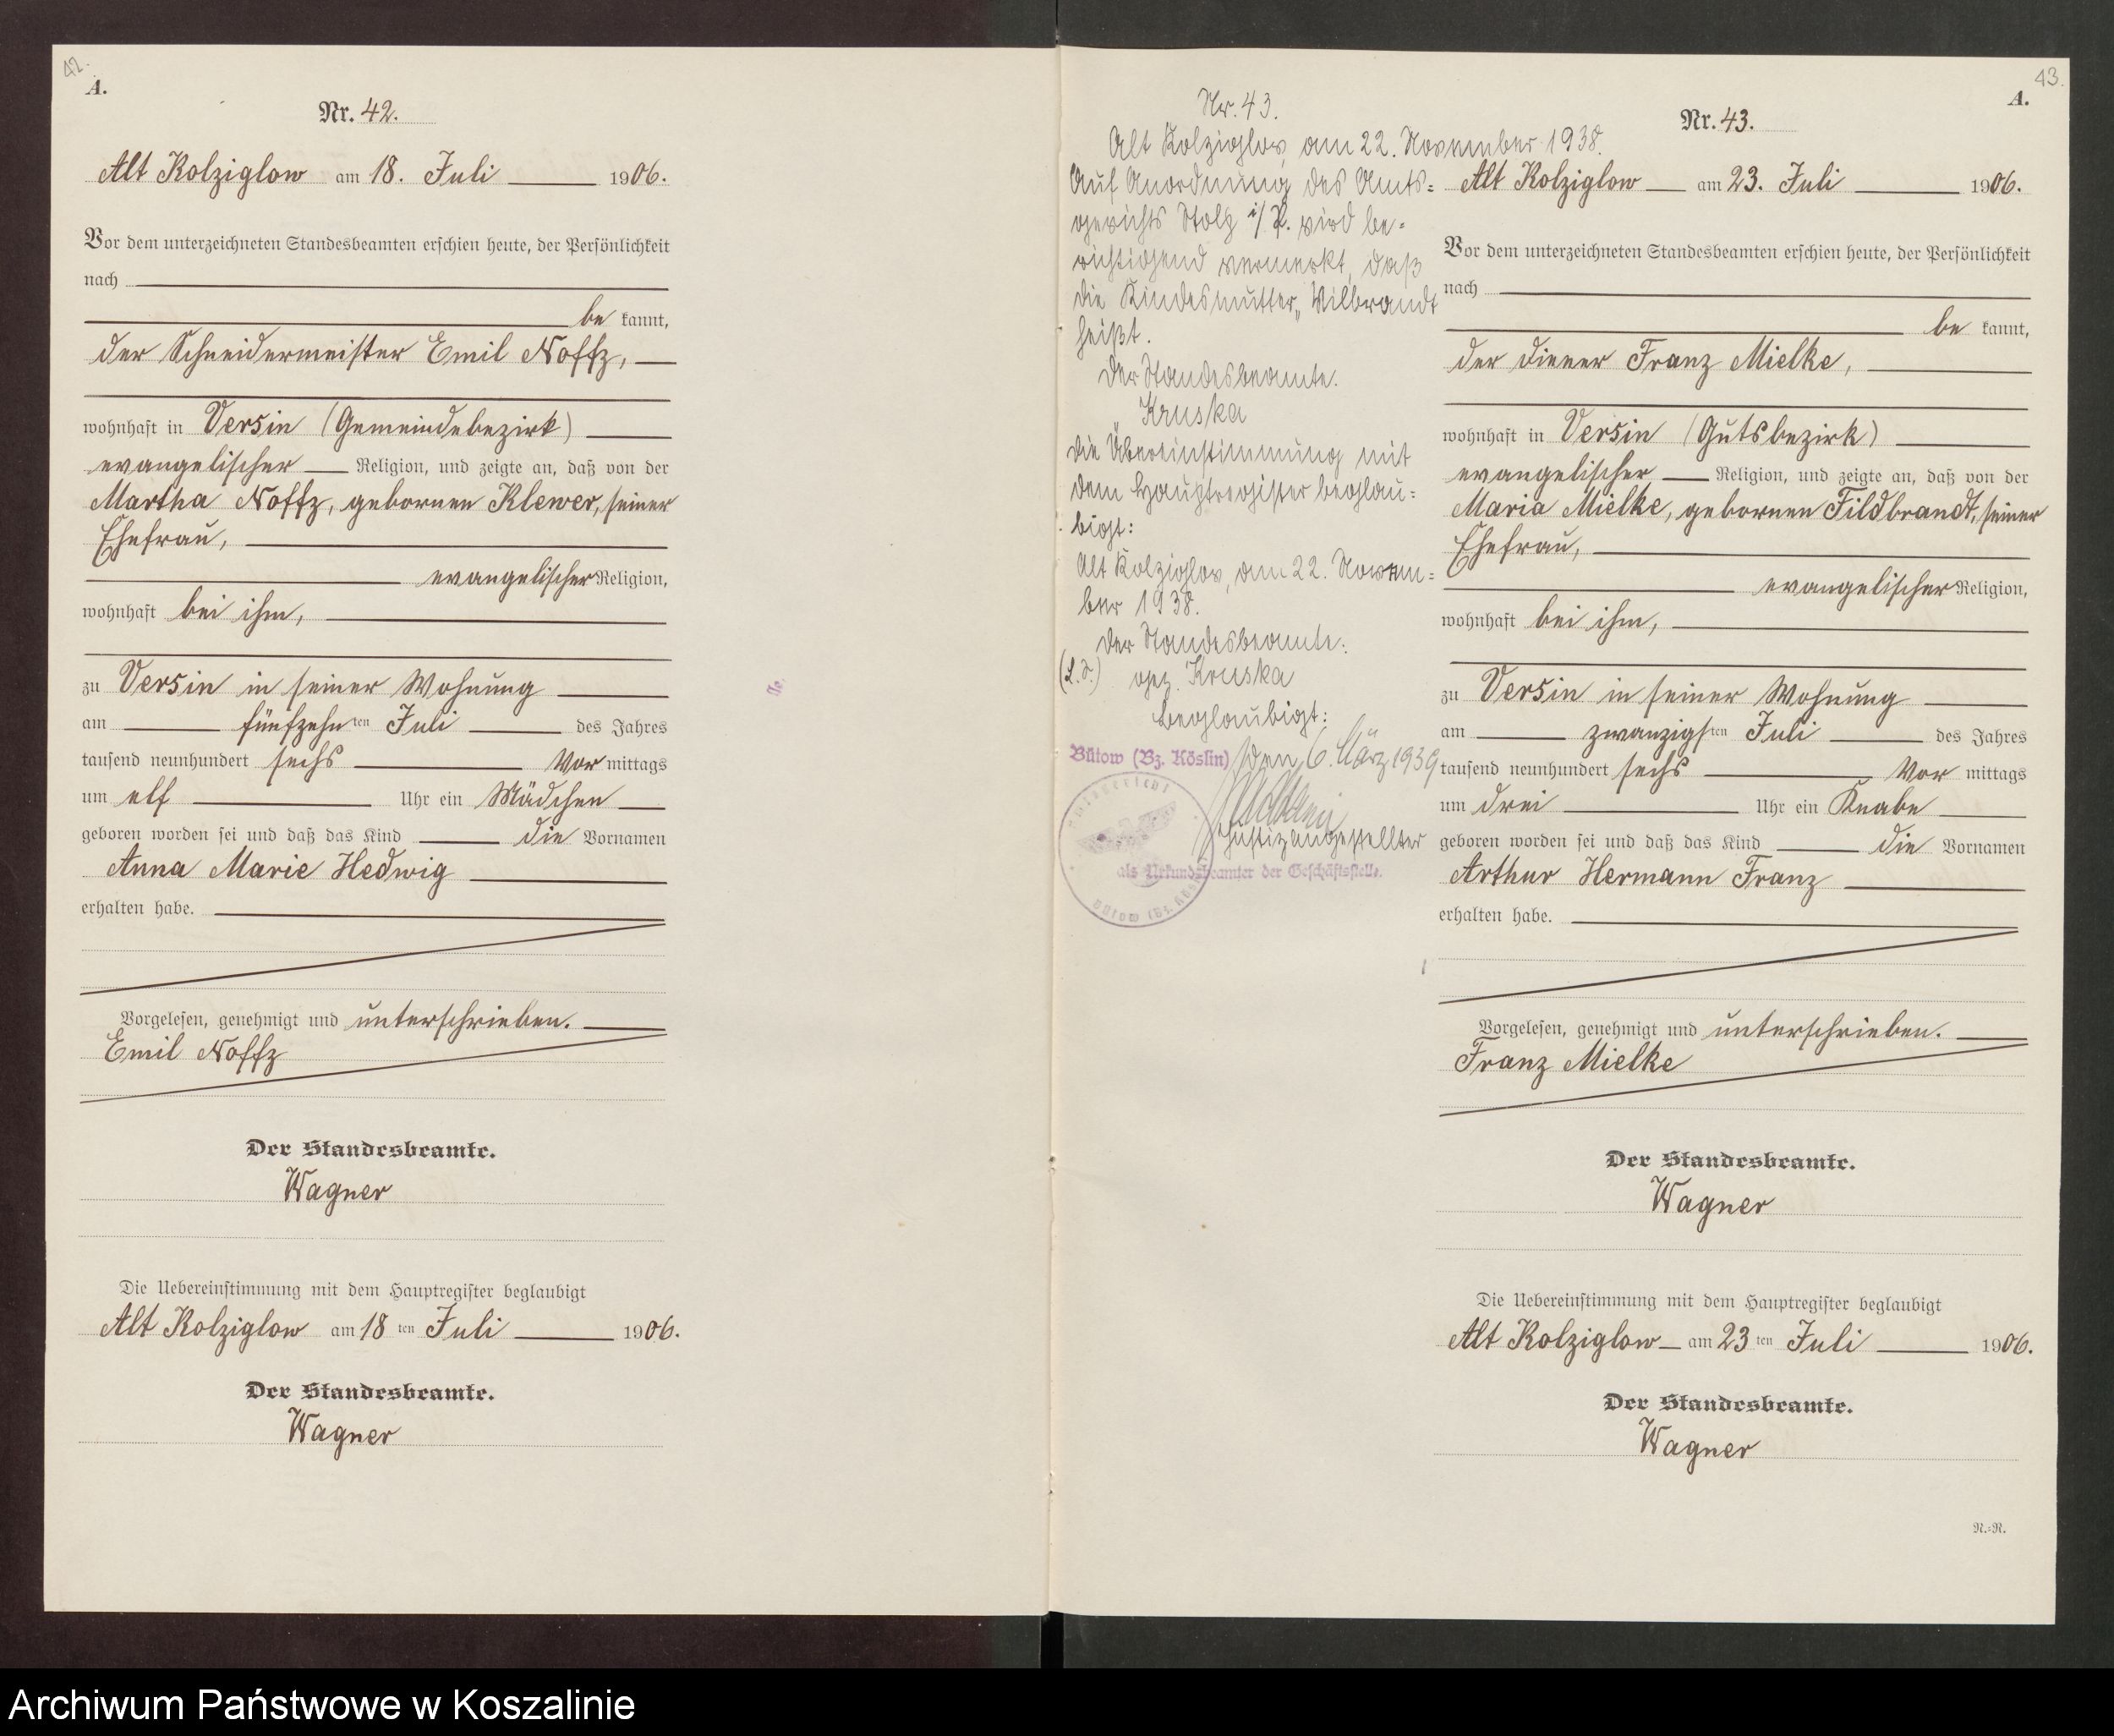 42.
A.
Nr. 42.
Alt Kolziglow am 18. Juli 1906.
Vor dem unterzeichneten Standesbeamten erschien heute, der Persönlichkeit
nach
be kannt,
der Schneidermeister Emil Noffz,
wohnhaft in Versin (Gemeindebezirk)
evangelischer Religion, und zeigte an, daß von der
Martha Noffz, gebornen Klewer, seiner
Ehefrau,
evangelischer Religion,
wohnhaft bei ihm,
zu Versin in seiner Wohnung
am fünfzehn ten Juli des Jahres
tausend neunhundert sechs Vor mittags
um elf Uhr ein Mädchen
geboren worden sei und daß das Kind die Vornamen
Anna Marie Hedwig
erhalten habe.
Vorgelesen, genehmigt und unterschrieben.
Emil Noffz
Der Standesbeamte.
Wagner
Die Uebereinstimmung mit dem Hauptregister beglaubigt
Alt Kolziglow am 18 ten Juli 1906.
Der Standesbeamte.
Wagner
Nr. 43.
Alt Kolziglow, am 22. November 1938.
Auf Anordnung des Amts=
gerichts Stolp i/P. wird be=
richtigend vermerkt, daß
die Kindesmutter „Wilbrandt
heißt.
Der Standesbeamte.
Kruska
Die Übereinstimmung mit
dem Hauptregister beglau=
bigt:
Alt Kolziglow, am 22. Novem=
ber 1938.
Der Standesbeamte:
(L.S.) gez. Kruska
Beglaubigt:
Bütow (Bz. Köslin) den 6. März 1939
Justizangestellter
als Urkundsbeamter der Geschäftsstelle.
Amtsgericht
Bütow (Bz. Köslin)
43.
A.
Nr. 43.
Alt Kolziglow am 23. Juli 1906.
Vor dem unterzeichneten Standesbeamten erschien heute, der Persönlichkeit
nach
be kannt,
der Diener Franz Mielke,
wohnhaft in Versin (Gutsbezirk)
evangelischer Religion, und zeigte an, daß von der
Maria Mielke, gebornen Fildbrandt, seiner
Ehefrau,
evangelischer Religion,
wohnhaft bei ihm,
zu Versin in seiner Wohnung
am zwanzigs ten Juli des Jahres
tausend neunhundert sechs Vor mittags
um drei Uhr ein Knabe
geboren worden sei und daß das Kind die Vornamen
Arthur Hermann Franz
erhalten habe.
Vorgelesen, genehmigt und unterschrieben.
Franz Mielke
Der Standesbeamte.
Wagner
Die Uebereinstimmung mit dem Hauptregister beglaubigt
Alt Kolziglow am 23 ten Juli 1906.
Der Standesbeamte.
Wagner
N.=N.
Archiwum Państwowe w Koszalinie